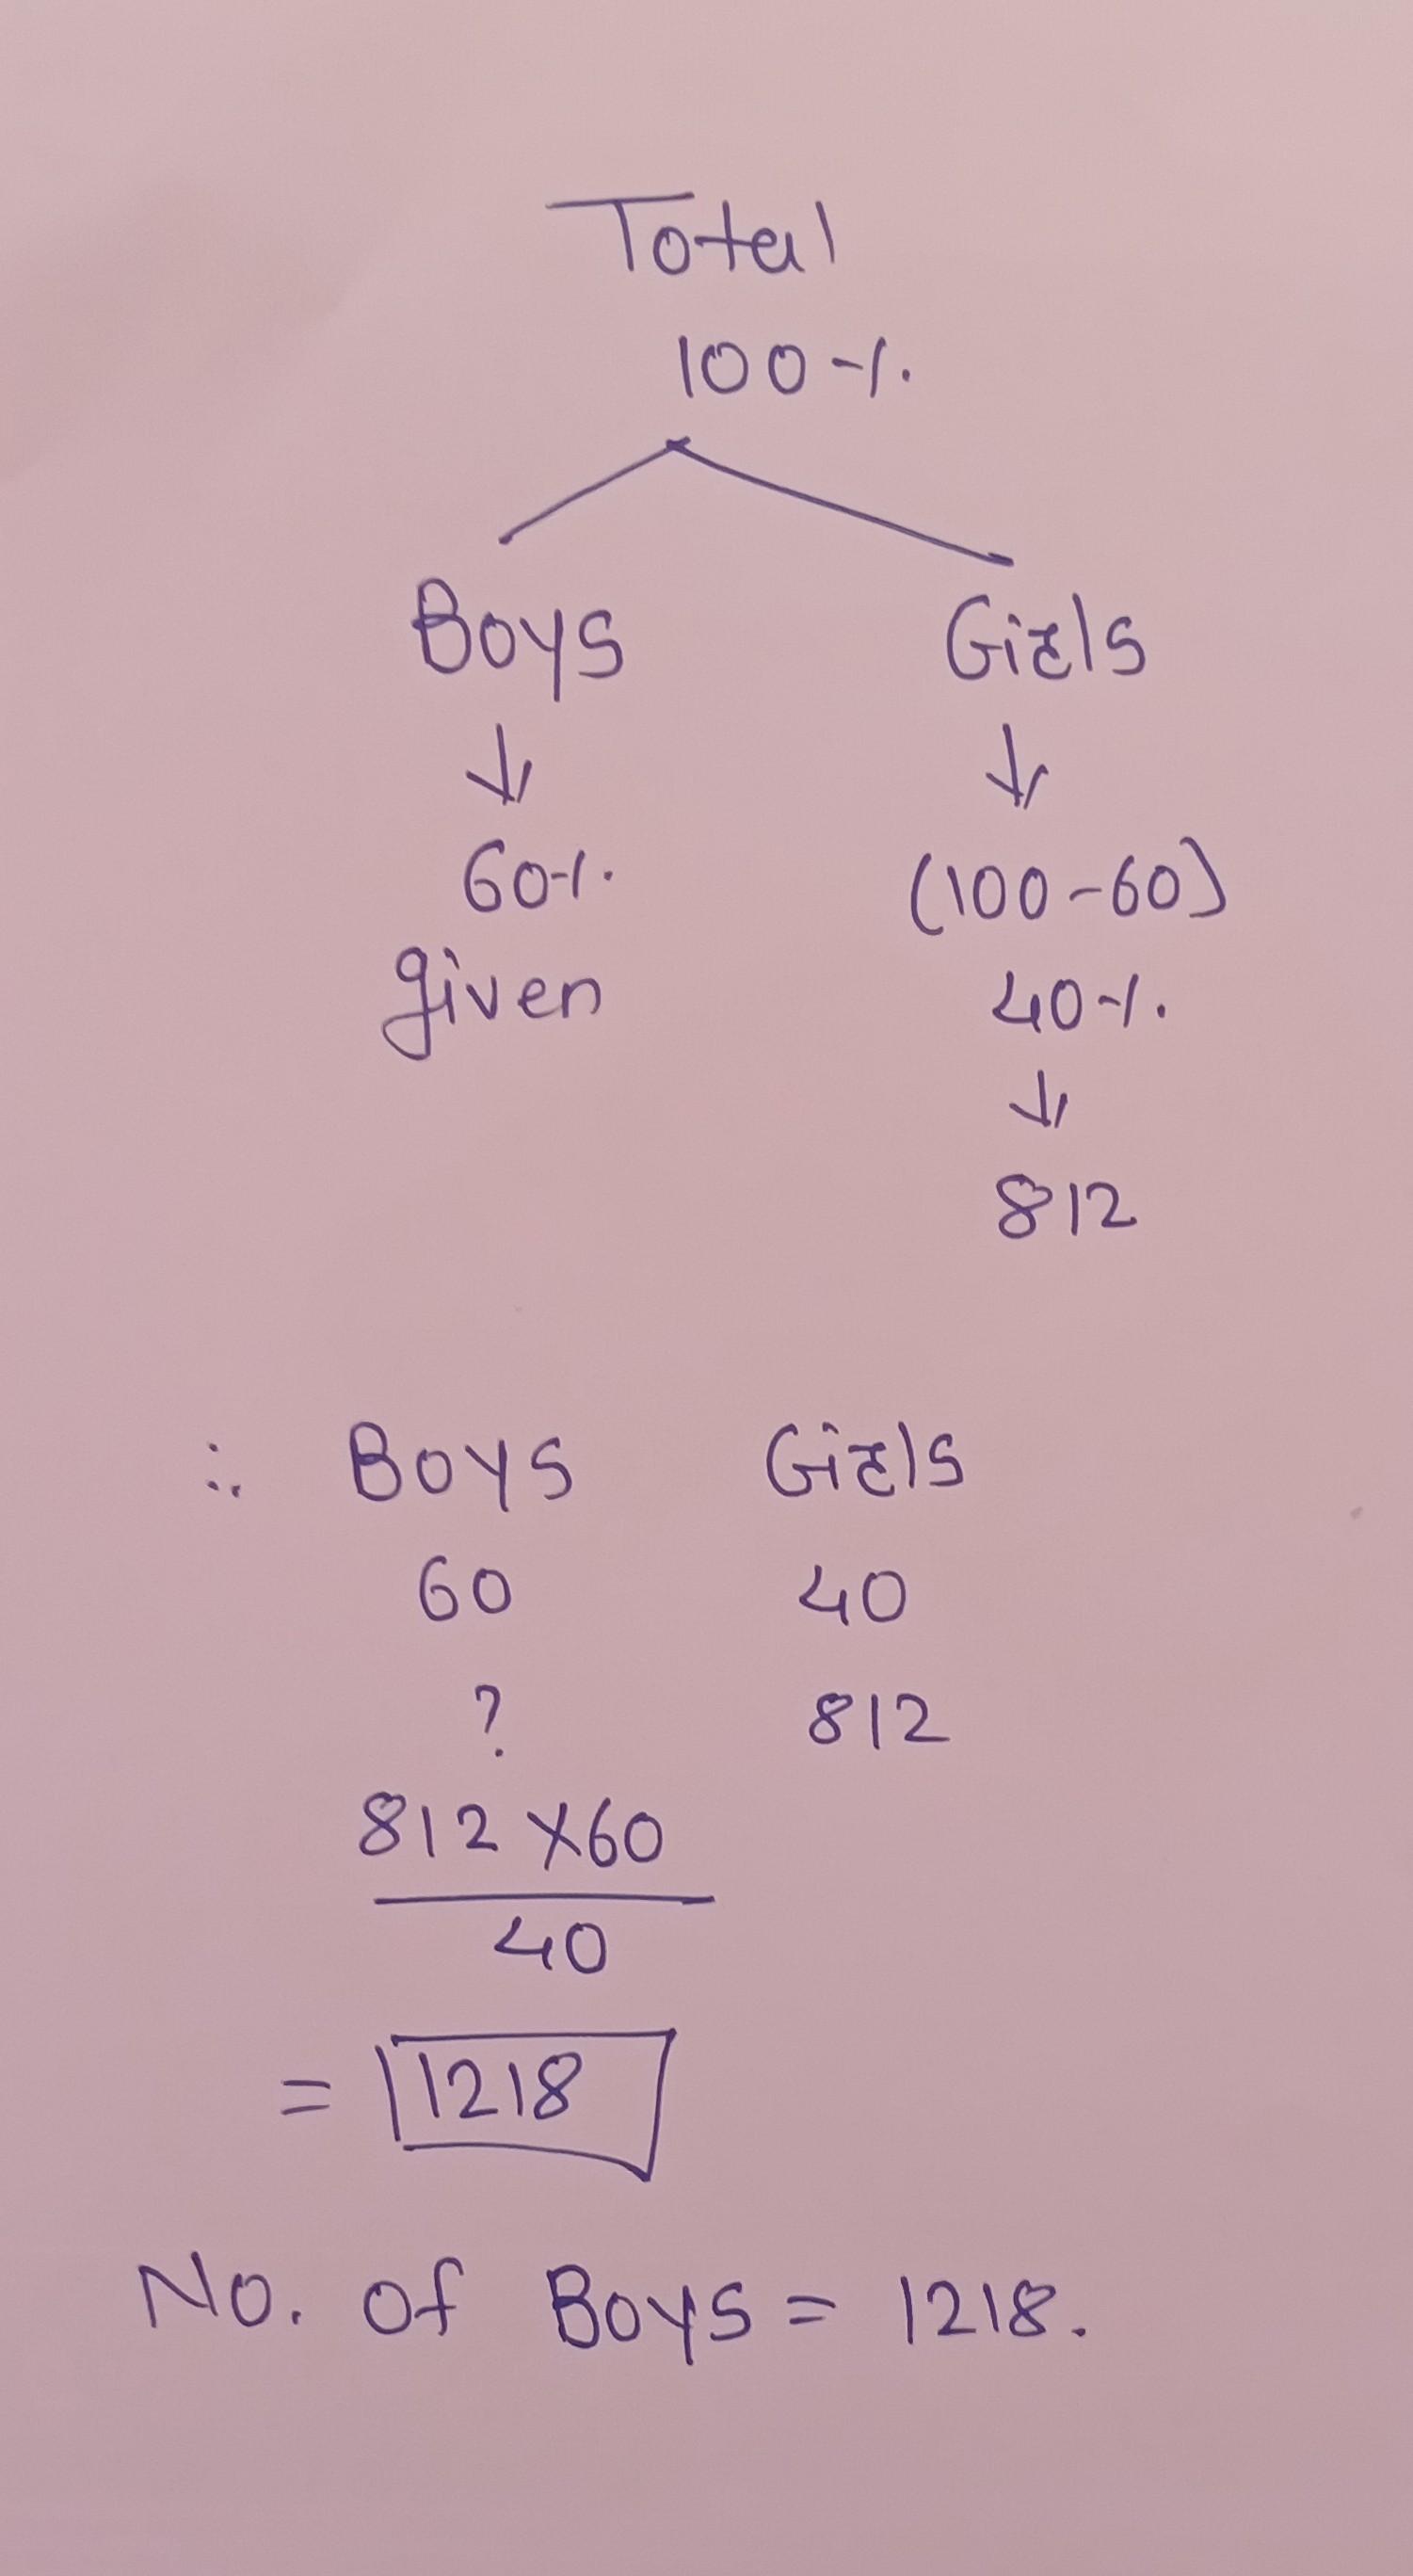 Total
100%
Boys Girls
↓ ↓
60% (100-60)
given 40%
↓
812
∴ Boys Girls
60 40
? 812
812 X60
40
= 1218
No. of Boys = 1218.